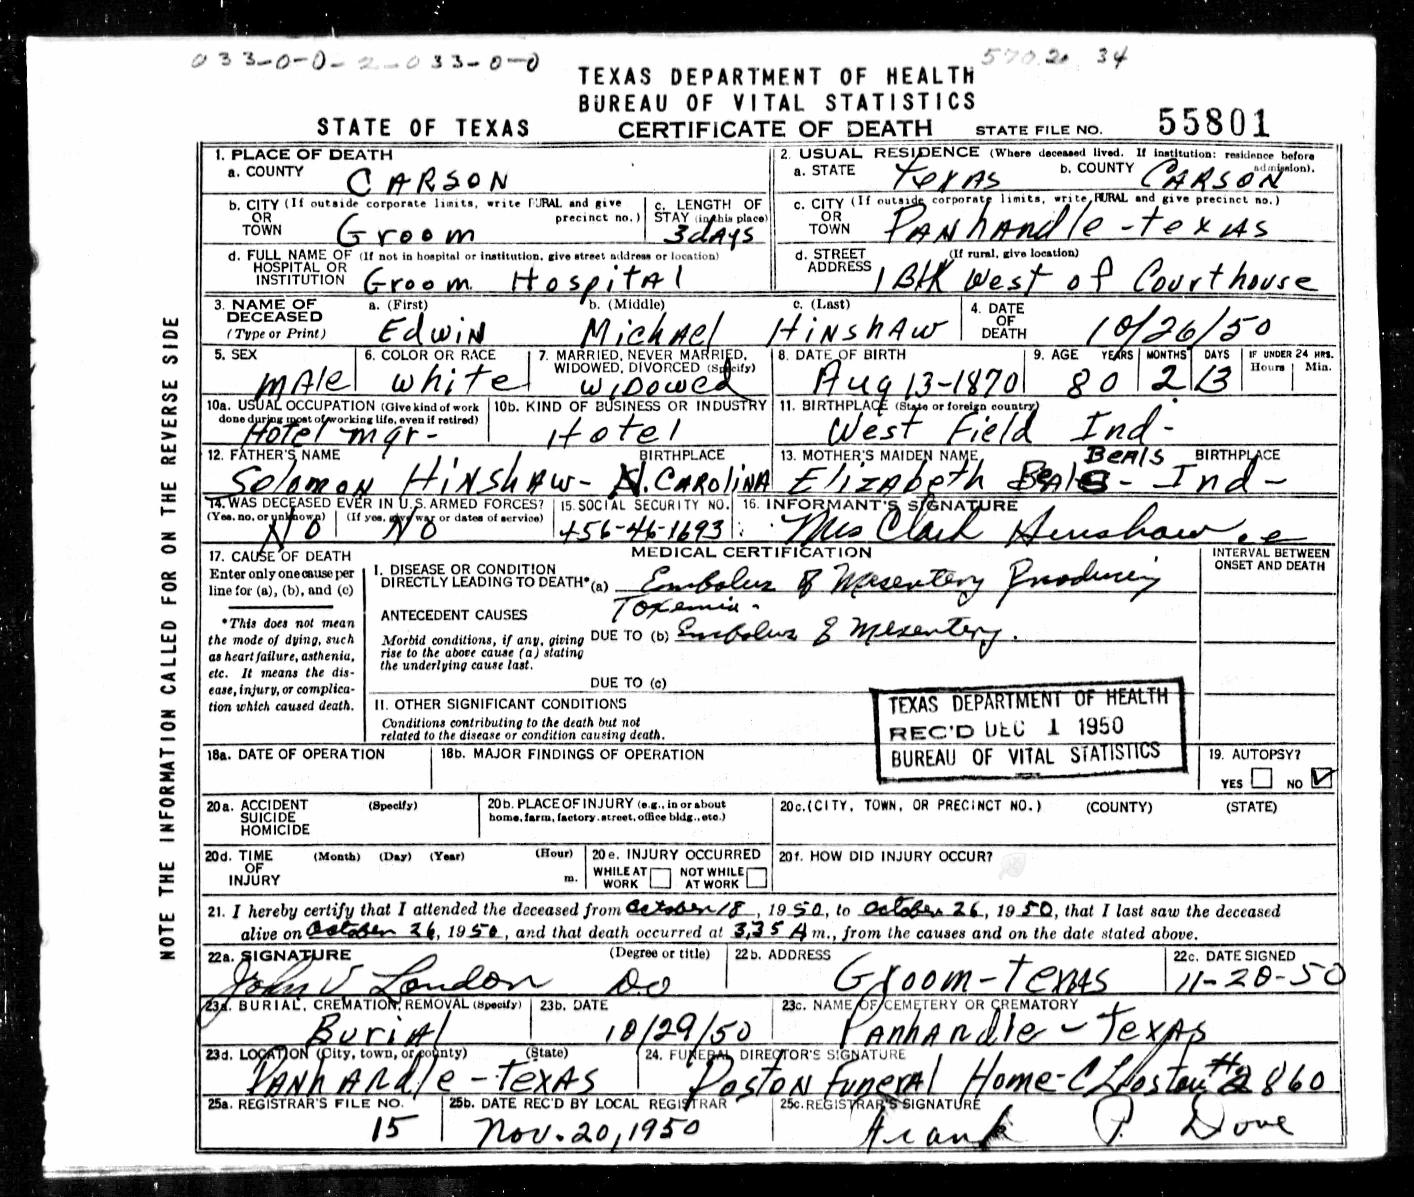 033-0-0-2-033-0-0 570.2 34
TEXAS DEPARTMENT OF HEALTH
BUREAU OF VITAL STATISTICS
STATE OF TEXAS CERTIFICATE OF DEATH STATE FILE NO. 55801
1. PLACE OF DEATH
a. COUNTY CARSON
2. USUAL RESIDENCE (Where deceased lived. If institution: residence before admission).
a. STATE TEXAS b. COUNTY CARSON
b. CITY (If outside corporate limits, write RURAL and give precinct no.)
OR TOWN Groom
c. LENGTH OF STAY (in this place) 3 days
c. CITY (If outside corporate limits, write RURAL and give precinct no.)
OR TOWN Panhandle - Texas
d. FULL NAME OF (If not in hospital or institution, give street address or location)
HOSPITAL OR INSTITUTION Groom Hospital
d. STREET ADDRESS (If rural, give location)
1 Blk West of Courthouse
3. NAME OF DECEASED (Type or Print)
a. (First) Edwin b. (Middle) Michael c. (Last) Hinshaw
4. DATE OF DEATH 10/26/50
5. SEX male
6. COLOR OR RACE white
7. MARRIED, NEVER MARRIED, WIDOWED, DIVORCED (Specify) Widowed
8. DATE OF BIRTH Aug 13-1870
9. AGE YEARS 80 MONTHS 2 DAYS 13 IF UNDER 24 HRS. Hours Min.
10a. USUAL OCCUPATION (Give kind of work done during most of working life, even if retired) Hotel mgr-
10b. KIND OF BUSINESS OR INDUSTRY Hotel
11. BIRTHPLACE (State or foreign country) West Field Ind-
12. FATHER'S NAME BIRTHPLACE
Solomon Hinshaw- N. Carolina
13. MOTHER'S MAIDEN NAME BIRTHPLACE
Beals
Elizabeth Beals - Ind-
14. WAS DECEASED EVER IN U.S. ARMED FORCES?
(Yes, no, or unknown) (If yes, give war or dates of service)
No No
15. SOCIAL SECURITY NO. 456-46-1693
16. INFORMANT'S SIGNATURE
Mrs Clark Hinshaw
17. CAUSE OF DEATH
Enter only one cause per line for (a), (b), and (c)
*This does not mean the mode of dying, such as heart failure, asthenia, etc. It means the disease, injury, or complication which caused death.
MEDICAL CERTIFICATION
INTERVAL BETWEEN ONSET AND DEATH
I. DISEASE OR CONDITION DIRECTLY LEADING TO DEATH* (a) Embolus of Mesentery Producing
Toxemia.
ANTECEDENT CAUSES
Morbid conditions, if any, giving rise to the above cause (a) stating the underlying cause last.
DUE TO (b) Embolus of Mesentery.
DUE TO (c)
II. OTHER SIGNIFICANT CONDITIONS
Conditions contributing to the death but not related to the disease or condition causing death.
TEXAS DEPARTMENT OF HEALTH
REC'D DEC 1 1950
BUREAU OF VITAL STATISTICS
18a. DATE OF OPERATION
18b. MAJOR FINDINGS OF OPERATION
19. AUTOPSY?
YES NO
20a. ACCIDENT SUICIDE HOMICIDE (Specify)
20b. PLACE OF INJURY (e.g., in or about home, farm, factory, street, office bldg., etc.)
20c. (CITY, TOWN, OR PRECINCT NO.) (COUNTY) (STATE)
20d. TIME OF INJURY (Month) (Day) (Year) (Hour) m.
20e. INJURY OCCURRED
WHILE AT WORK NOT WHILE AT WORK
20f. HOW DID INJURY OCCUR?
21. I hereby certify that I attended the deceased from October 18, 1950, to October 26, 1950, that I last saw the deceased
alive on October 26, 1950, and that death occurred at 3,35 A m., from the causes and on the date stated above.
22a. SIGNATURE (Degree or title)
John V London D.O
22b. ADDRESS Groom-Texas
22c. DATE SIGNED 11-20-50
23a. BURIAL, CREMATION, REMOVAL (Specify) Burial
23b. DATE 10/29/50
23c. NAME OF CEMETERY OR CREMATORY Panhandle - Texas
23d. LOCATION (City, town, or county) (State)
Panhandle - Texas
24. FUNERAL DIRECTOR'S SIGNATURE
Poston Funeral Home - C L Poston #2860
25a. REGISTRAR'S FILE NO. 15
25b. DATE REC'D BY LOCAL REGISTRAR Nov. 20, 1950
25c. REGISTRAR'S SIGNATURE
Frank P. Dove
NOTE THE INFORMATION CALLED FOR ON THE REVERSE SIDE